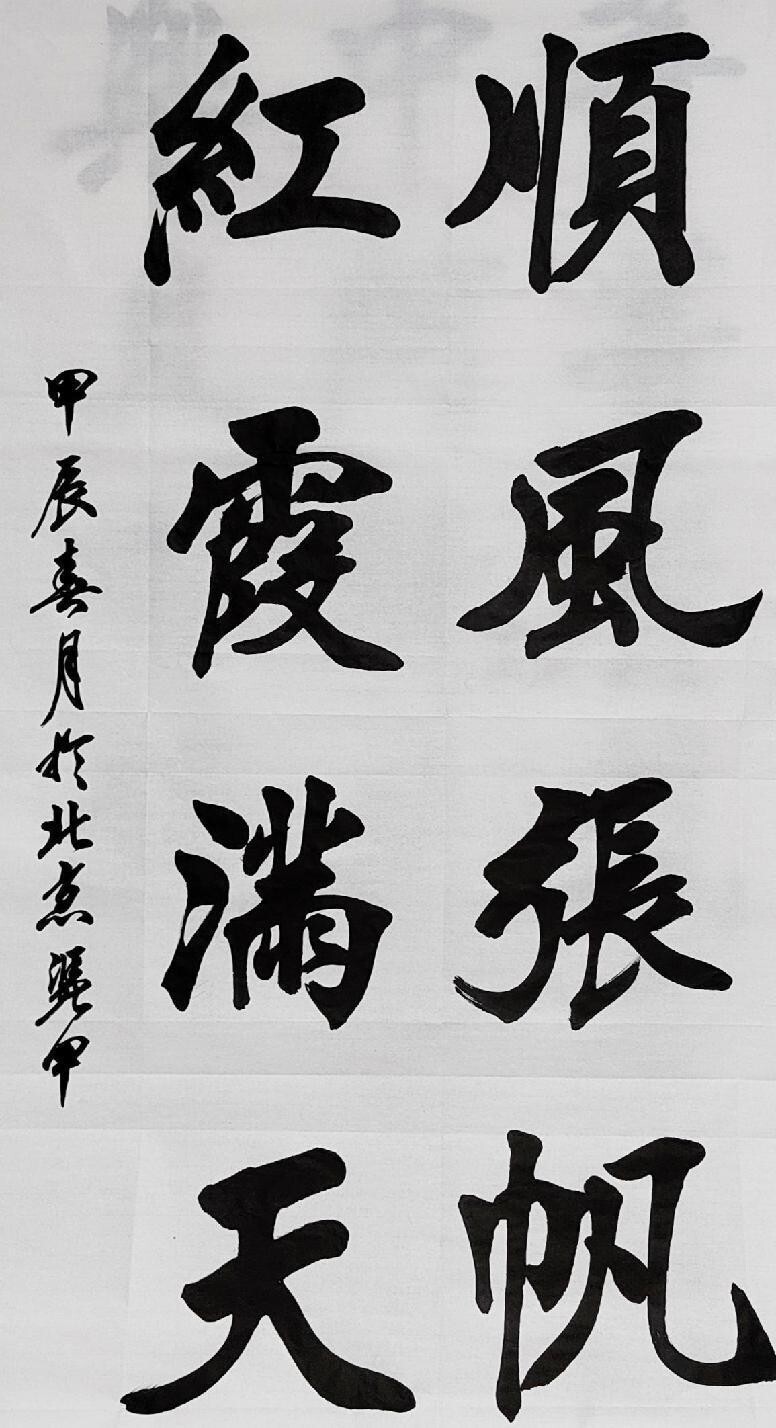 順風張帆
紅霞滿天
甲辰春月於北京張甲